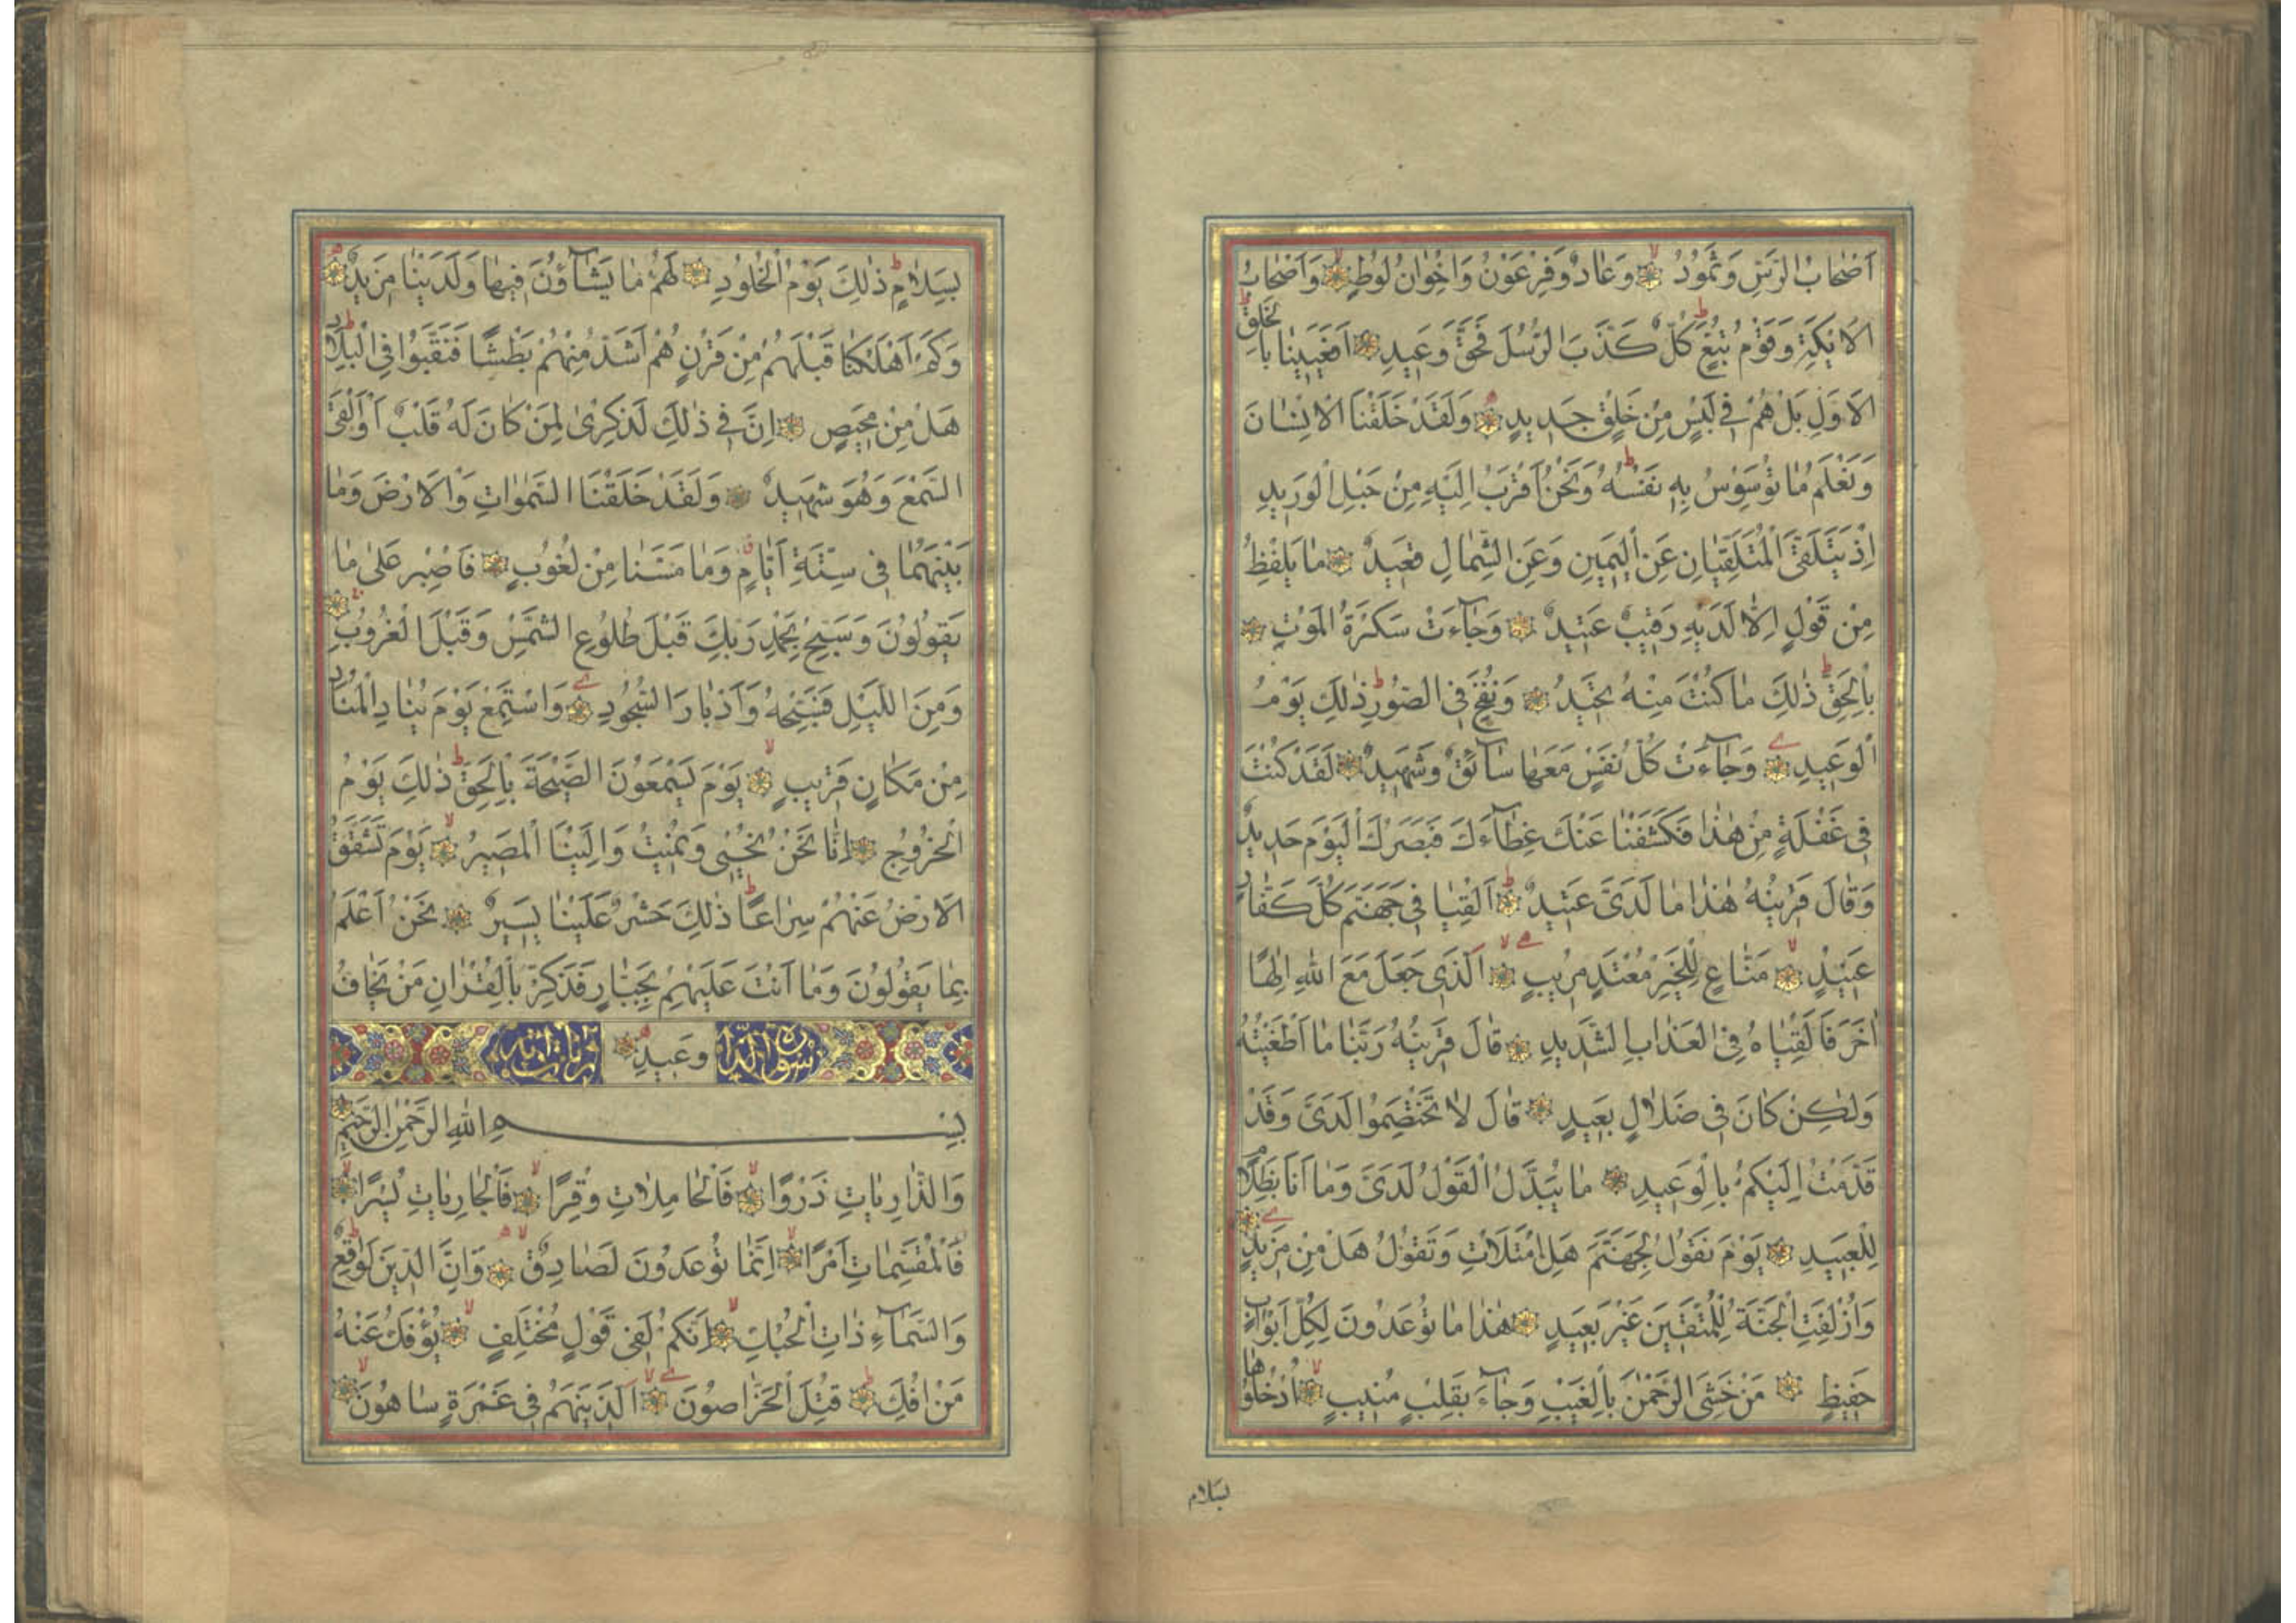 اَصْحَابُ الرَّسِّ وَثَمُودُ وَعَادٌ وَفِرْعَوْنُ وَاِخْوَانُ لُوطٍ وَاَصْحَابُ
الْاَيْكَةِ وَقَوْمُ تُبَّعٍ كُلٌّ كَذَّبَ الرُّسُلَ فَحَقَّ وَعِيدِ اَفَعَيِينَا بِالْخَلْقِ
الْاَوَّلِ بَلْ هُمْ فِي لَبْسٍ مِنْ خَلْقٍ جَدِيدٍ وَلَقَدْ خَلَقْنَا الْاِنْسَانَ
وَنَعْلَمُ مَا تُوَسْوِسُ بِهِ نَفْسُهُ وَنَحْنُ اَقْرَبُ اِلَيْهِ مِنْ حَبْلِ الْوَرِيدِ
اِذْ يَتَلَقَّى الْمُتَلَقِّيَانِ عَنِ الْيَمِينِ وَعَنِ الشِّمَالِ قَعِيدٌ مَا يَلْفِظُ
مِنْ قَوْلٍ اِلَّا لَدَيْهِ رَقِيبٌ عَتِيدٌ وَجَآءَتْ سَكْرَةُ الْمَوْتِ
بِالْحَقِّ ذٰلِكَ مَا كُنْتَ مِنْهُ تَحِيدُ وَنُفِخَ فِي الصُّورِ ذٰلِكَ يَوْمُ
الْوَعِيدِ وَجَآءَتْ كُلُّ نَفْسٍ مَعَهَا سَآئِقٌ وَشَهِيدٌ لَقَدْ كُنْتَ
فِي غَفْلَةٍ مِنْ هٰذَا فَكَشَفْنَا عَنْكَ غِطَآءَكَ فَبَصَرُكَ الْيَوْمَ حَدِيدٌ
وَقَالَ قَرِينُهُ هٰذَا مَا لَدَيَّ عَتِيدٌ اَلْقِيَا فِي جَهَنَّمَ كُلَّ كَفَّارٍ
عَنِيدٍ مَنَّاعٍ لِلْخَيْرِ مُعْتَدٍ مُرِيبٍ اَلَّذِي جَعَلَ مَعَ اللهِ اِلٰهًا
اٰخَرَ فَاَلْقِيَاهُ فِي الْعَذَابِ الشَّدِيدِ قَالَ قَرِينُهُ رَبَّنَا مَا اَطْغَيْتُهُ
وَلٰكِنْ كَانَ فِي ضَلَالٍ بَعِيدٍ قَالَ لَا تَخْتَصِمُوا لَدَيَّ وَقَدْ
قَدَّمْتُ اِلَيْكُمْ بِالْوَعِيدِ مَا يُبَدَّلُ الْقَوْلُ لَدَيَّ وَمَا اَنَا بِظَلَّامٍ
لِلْعَبِيدِ يَوْمَ نَقُولُ لِجَهَنَّمَ هَلِ امْتَلَاْتِ وَتَقُولُ هَلْ مِنْ مَزِيدٍ
وَاُزْلِفَتِ الْجَنَّةُ لِلْمُتَّقِينَ غَيْرَ بَعِيدٍ هٰذَا مَا تُوعَدُونَ لِكُلِّ اَوَّابٍ
حَفِيظٍ مَنْ خَشِيَ الرَّحْمٰنَ بِالْغَيْبِ وَجَآءَ بِقَلْبٍ مُنِيبٍ اُدْخُلُوهَا
بسلام
بِسَلَامٍ ذٰلِكَ يَوْمُ الْخُلُودِ لَهُمْ مَا يَشَآؤُنَ فِيهَا وَلَدَيْنَا مَزِيدٌ
وَكَمْ اَهْلَكْنَا قَبْلَهُمْ مِنْ قَرْنٍ هُمْ اَشَدُّ مِنْهُمْ بَطْشًا فَنَقَّبُوا فِي الْبِلَادِ
هَلْ مِنْ مَحِيصٍ اِنَّ فِي ذٰلِكَ لَذِكْرٰى لِمَنْ كَانَ لَهُ قَلْبٌ اَوْ اَلْقَى
السَّمْعَ وَهُوَ شَهِيدٌ وَلَقَدْ خَلَقْنَا السَّمٰوَاتِ وَالْاَرْضَ وَمَا
بَيْنَهُمَا فِي سِتَّةِ اَيَّامٍ وَمَا مَسَّنَا مِنْ لُغُوبٍ فَاصْبِرْ عَلٰى مَا
يَقُولُونَ وَسَبِّحْ بِحَمْدِ رَبِّكَ قَبْلَ طُلُوعِ الشَّمْسِ وَقَبْلَ الْغُرُوبِ
وَمِنَ اللَّيْلِ فَسَبِّحْهُ وَاَدْبَارَ السُّجُودِ وَاسْتَمِعْ يَوْمَ يُنَادِ الْمُنَادِ
مِنْ مَكَانٍ قَرِيبٍ يَوْمَ يَسْمَعُونَ الصَّيْحَةَ بِالْحَقِّ ذٰلِكَ يَوْمُ
الْخُرُوجِ اِنَّا نَحْنُ نُحْيِي وَنُمِيتُ وَاِلَيْنَا الْمَصِيرُ يَوْمَ تَشَقَّقُ
الْاَرْضُ عَنْهُمْ سِرَاعًا ذٰلِكَ حَشْرٌ عَلَيْنَا يَسِيرٌ نَحْنُ اَعْلَمُ
بِمَا يَقُولُونَ وَمَا اَنْتَ عَلَيْهِمْ بِجَبَّارٍ فَذَكِّرْ بِالْقُرْاٰنِ مَنْ يَخَافُ
وَعِيدِ
بِسْمِ اللهِ الرَّحْمٰنِ الرَّحِيمِ
وَالذَّارِيَاتِ ذَرْوًا فَالْحَامِلَاتِ وِقْرًا فَالْجَارِيَاتِ يُسْرًا
فَالْمُقَسِّمَاتِ اَمْرًا اِنَّمَا تُوعَدُونَ لَصَادِقٌ وَاِنَّ الدِّينَ لَوَاقِعٌ
وَالسَّمَآءِ ذَاتِ الْحُبُكِ اِنَّكُمْ لَفِي قَوْلٍ مُخْتَلِفٍ يُؤْفَكُ عَنْهُ
مَنْ اُفِكَ قُتِلَ الْخَرَّاصُونَ اَلَّذِينَ هُمْ فِي غَمْرَةٍ سَاهُونَ